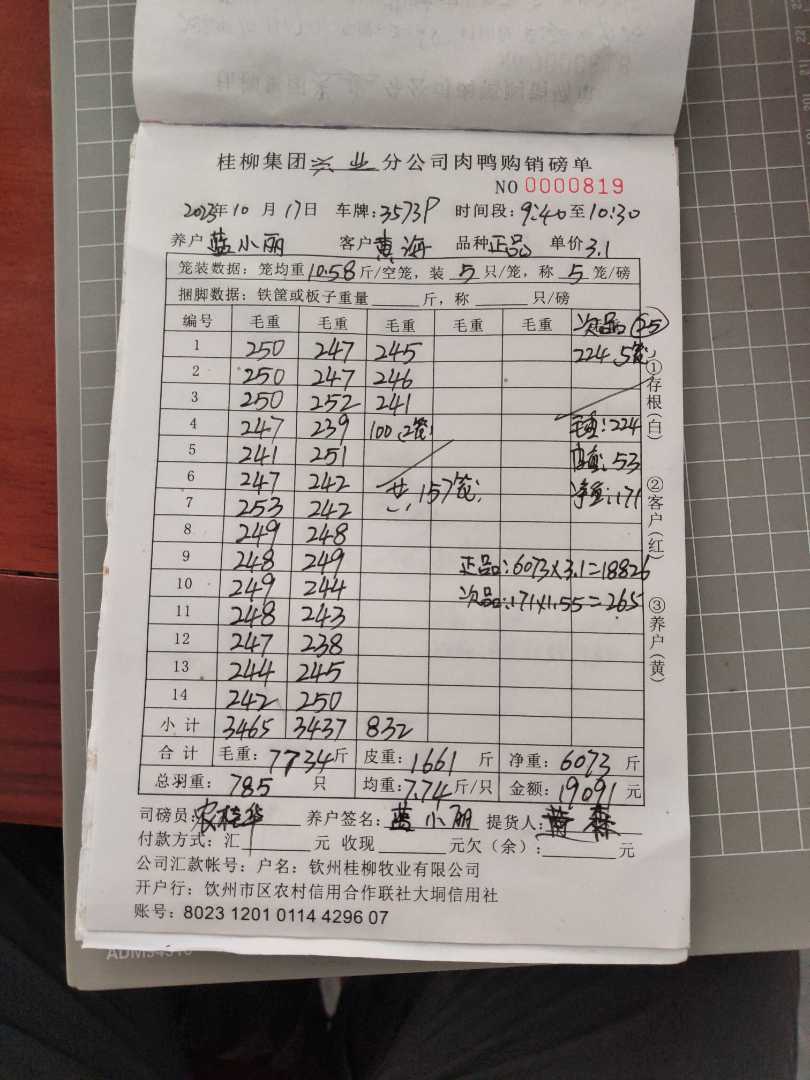 桂柳集团兴业分公司肉鸭购销磅单
NO 0000819
2023年10月17日 车牌:3573P 时间段:9:40至10:30
养户蓝小丽 客户黄海 品种正品 单价3.1
笼装数据:笼均重10.58斤/空笼,装5只/笼,称5笼/磅
捆脚数据:铁筐或板子重量______斤,称______只/磅
编号 毛重 毛重 毛重 毛重 毛重 次品 25
1 250 247 245 224.5笼
2 250 247 246
3 250 252 241
4 247 239 100(2笼) 毛重:224
5 241 251 皮重:53
6 247 242 共:157笼 净重:171
7 253 242
8 249 248
9 248 249 正品:6073×3.1=18826
10 249 244 次品:171×1.55=265
11 248 243
12 247 238
13 244 245
14 242 250
小计 3465 3437 832
合计 毛重:7734斤 皮重:1661斤 净重:6073斤
总羽重:785只 均重:7.74斤/只 金额:19091元
司磅员:农桂华 养户签名:蓝小丽 提货人:黄森
付款方式:汇______元 收现______元欠(余):______元
公司汇款帐号:户名:钦州桂柳牧业有限公司
开户行:饮州市区农村信用合作联社大垌信用社
账号:8023 1201 0114 4296 07
①存根(白) ②客户(红) ③养户(黄)